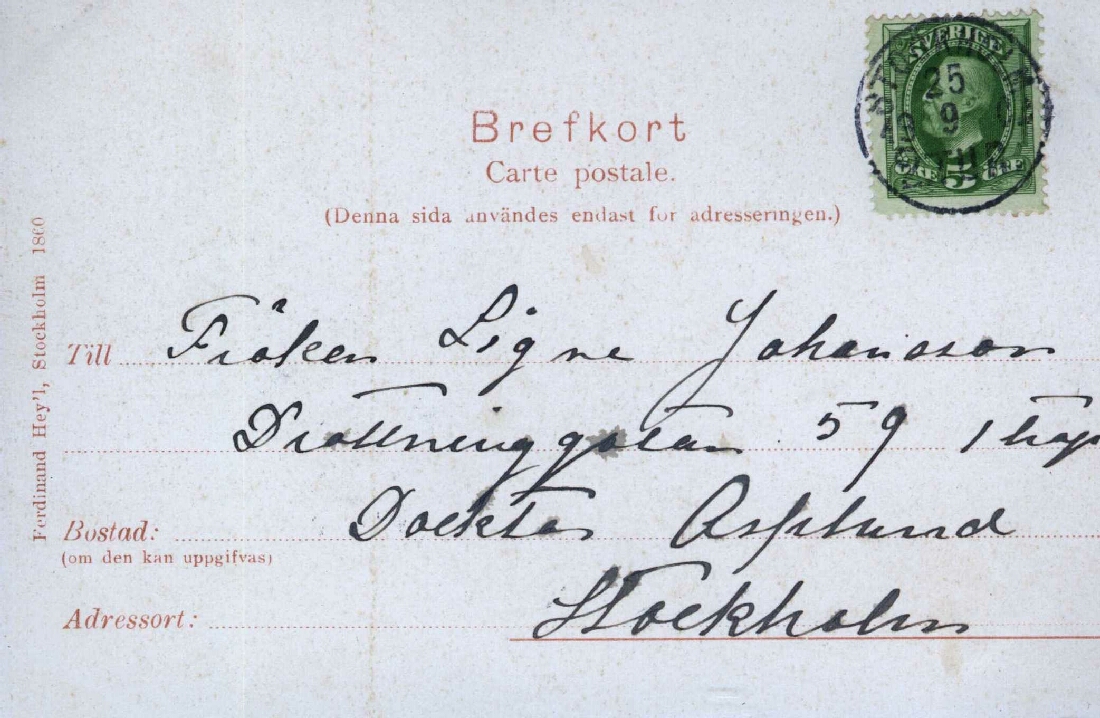 Brefkort
Carte postale.
(Denna sida användes endast för adresseringen.)
SVERIGE
5 ÖRE
25
9
Ferdinand Hey'l, Stockholm 1860
Till Fröken Signe Johansson
Drottninggatan 59 1 trap
Bostad: Docktor Asplund
(om den kan uppgifvas)
Adressort: Stockholm